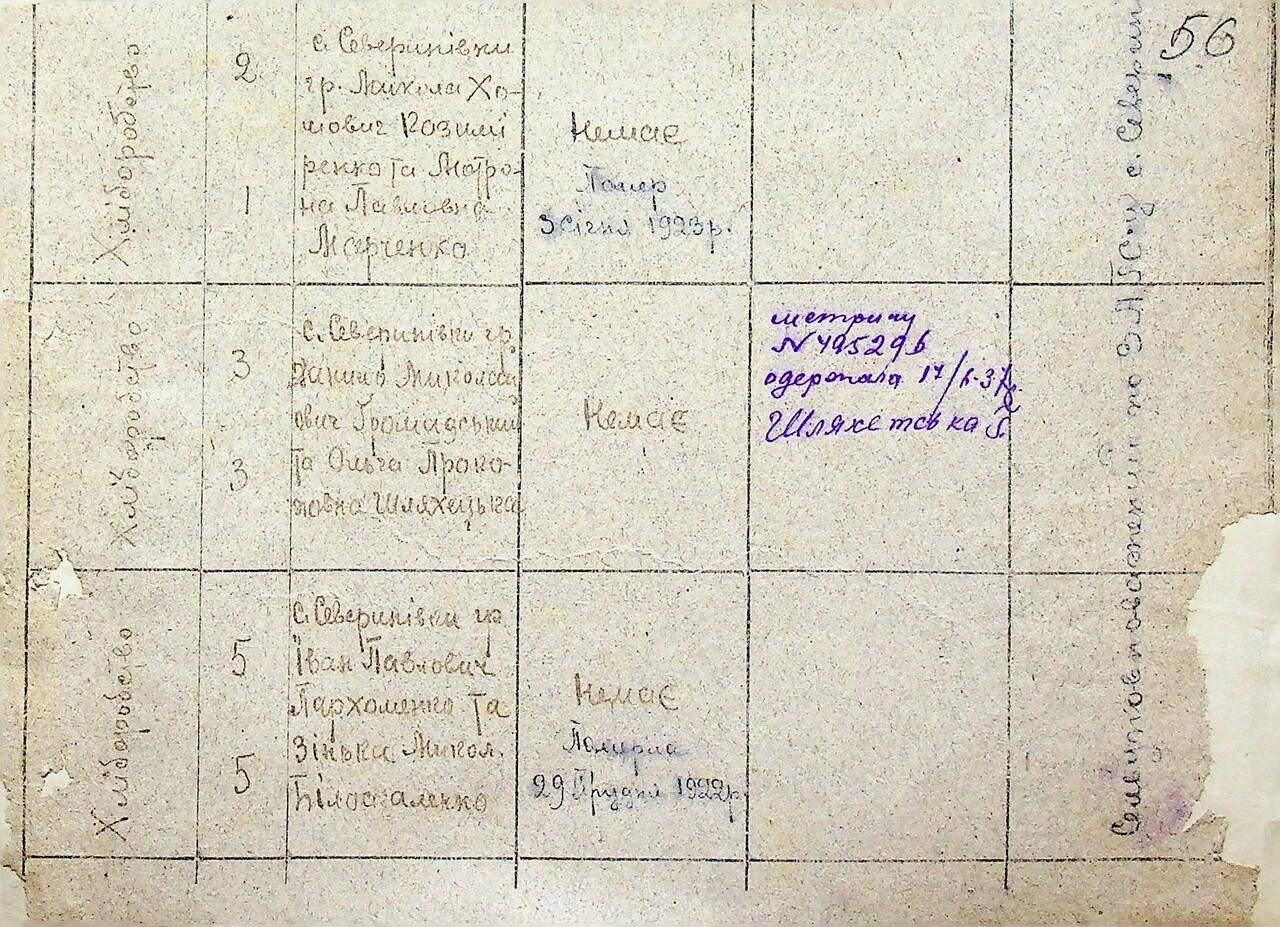 56
Хліборобство
2
1
с. Северинівки
гр. Микола Хо-
мович Козимі
ренко та Мотро-
на Павловна
Марченко
Немає
Помер
3 січня 1923 р.
Хліборобство
3
3
с. Северинівки гр.
Данило Миколай
ович Громадський
та Ольга Проко-
повна Шляхецька
Немає
метрику
N 495296
одержала 17/
Шляхетська
Хліборобство
5
5
с. Северинівки гр
Іван Павлович
Пархоменко та
Зінька Микол.
Немає
Померла
29 Грудня 1922р.
по ЗАГС-у с. Северин